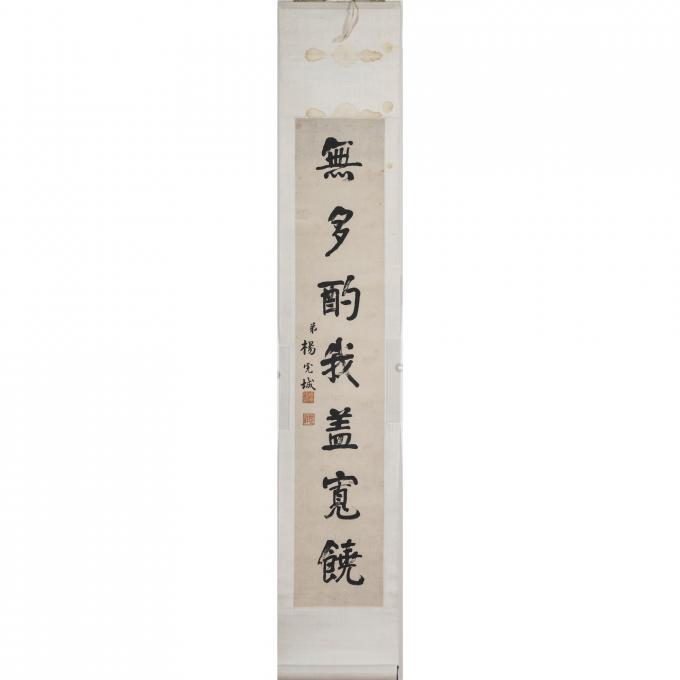 無多酌我盖寬饒
弟楊兆城